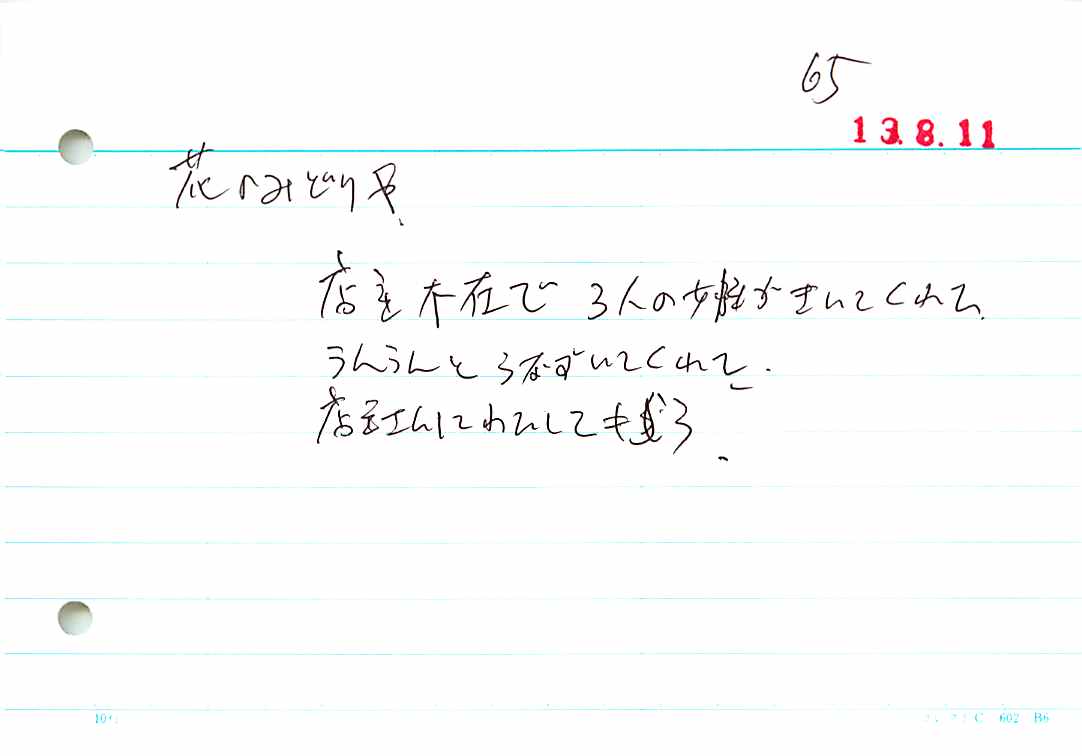 65
13.8.11
花のみどりや
店主不在で 3人の女性がきいてくれて、
うんうんと うなずいてくれて、
店主さんにわたしても
602 B6